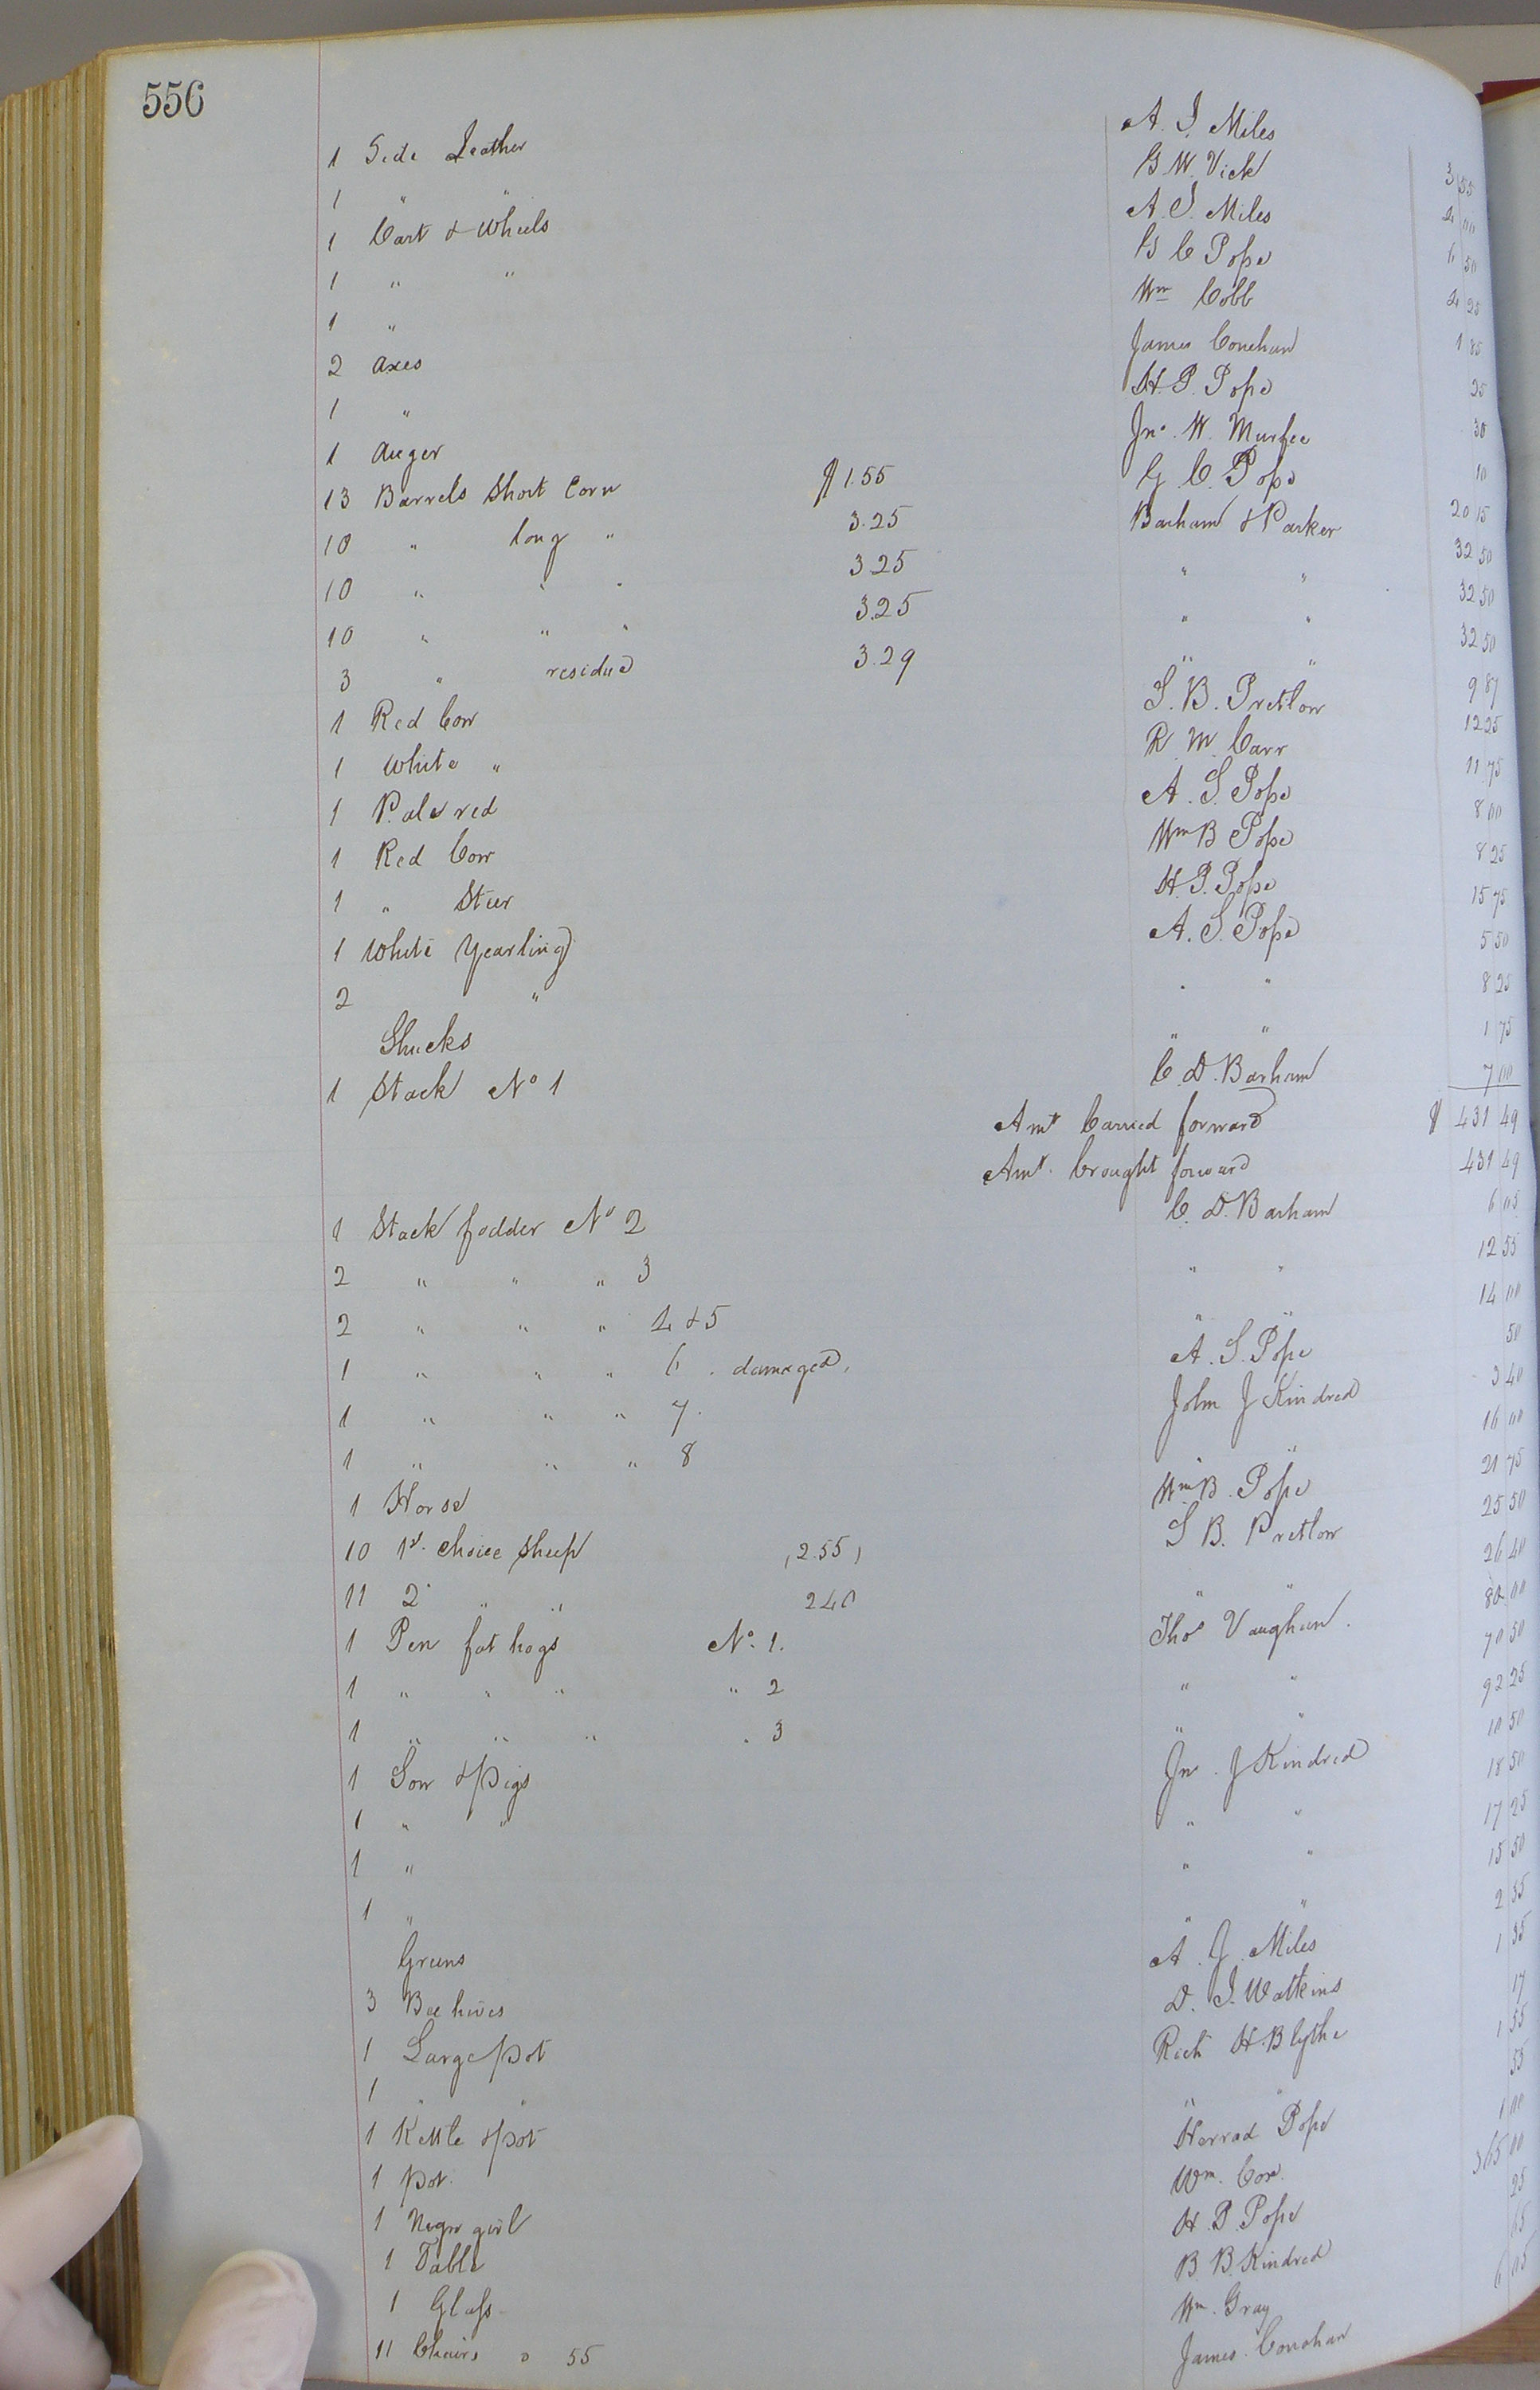 556
1 Side Leather A. J. Miles 3 55
1 " " G. W. Vick 4 00
1 Cart & Wheels A. J. Miles 6 50
1 " " G C Pope 4 25
1 " Wm Cobb 1 85
2 Axes James Conehan 25
1 " H. P. Pope 30
1 Auger Jno. W. Murfee 10
13 Barrels Short Corn $1.55 G. C. Pope 20 15
10 " long " 3.25 Barham & Parker 32 50
10 " " " 3 25 " " 32 50
10 " " " 3.25 " " 32 50
3 " residue 3.29 " " 9 87
1 Red Cow S. B. Pretlow 12 25
1 White " R. M. Carr 11 75
1 Pale red A. S. Pope 8 00
1 Red Cow Wm B Pope 8 25
1 " Steer H. P. Pope 15 75
1 White Yearling A. S. Pope 5 50
2 " " " 8 25
Shucks " " 1 75
1 Stack No 1 C. D. Barham 7 00
Amt Carried forward $ 431 49
Amt. brought forward 431 49
1 Stack fodder No 2 C. D. Barham 6 05
2 " " " 3 " " 12 55
2 " " " 4 & 5 " " 14 00
1 " " " 6 . damaged, A. S. Pope 50
1 " " " 7. John J Kindred 3 40
1 " " " 8 " " 16 00
1 Horse Wm B. Pope 21 75
10 1st choice Sheep (2.55) S B. Pretlow 25 50
11 2d " " 240 " " 26 40
1 Pen fat hogs No. 1. Thos Vaughan. 80 00
1 " " " " 2 " " 70 50
1 " " " " 3 " " 92 25
1 Sow & Pigs Jno. J Kindred 10 50
1 " " " " 18 50
1 " " " 17 25
1 " " " 15 50
Greens A. J. Miles 2 35
3 Bee hives D. J. Watkins 1 35
1 Large pot Rich H. Blythe 17
1 " " " " 1 55
1 Kettle & pot Herrod Pope 55
1 pot. Wm. Cox. 1 00
1 Negro girl H. P. Pope 365 00
1 Table B. B. Kindred 25
1 Glass Wm. Gray 65
11 Chairs @ 55 James Conohan 6 05